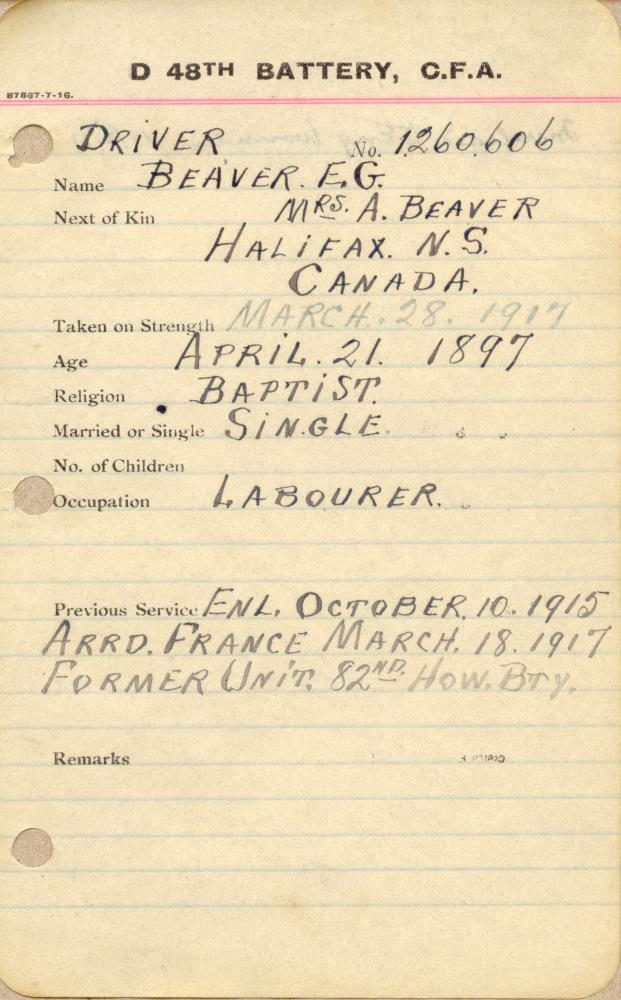 D 48TH BATTERY, C.F.A.
B7867-7-16.
DRIVER No. 1260606
Name BEAVER. E.G.
Next of Kin MRS. A. BEAVER
HALIFAX. N.S.
CANADA.
Taken on Strength MARCH. 28. 1917
Age APRIL. 21. 1897
Religion BAPTIST.
Married or Single SINGLE.
No. of Children
Occupation LABOURER.
Previous Service ENL. OCTOBER. 10. 1915
ARRD. FRANCE MARCH. 18. 1917
FORMER UNIT. 82ND. HOW. BTY.
Remarks